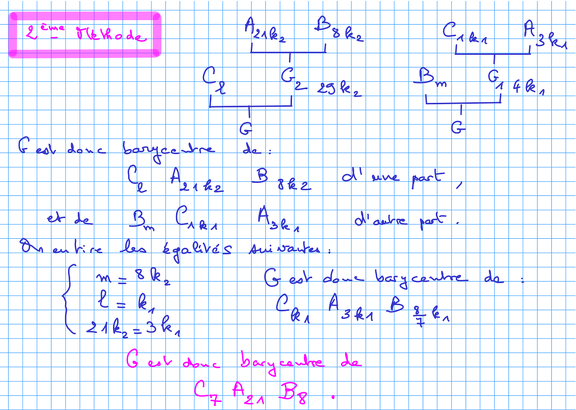 2ème Méthode
A21k2 B8k2 C1k1 A3k1
Cl G2 29k2 Bm G1 4k1
G G
G est donc barycentre de :
Cl A21k2 B8k2 d'une part,
et de Bm C1k1 A3k1 d'autre part.
On en tire les égalités suivantes :
m = 8k2 G est donc barycentre de :
l = k1 Ck1 A3k1 B8/7k1
21k2 = 3k1
G est donc barycentre de
C7 A21 B8 .